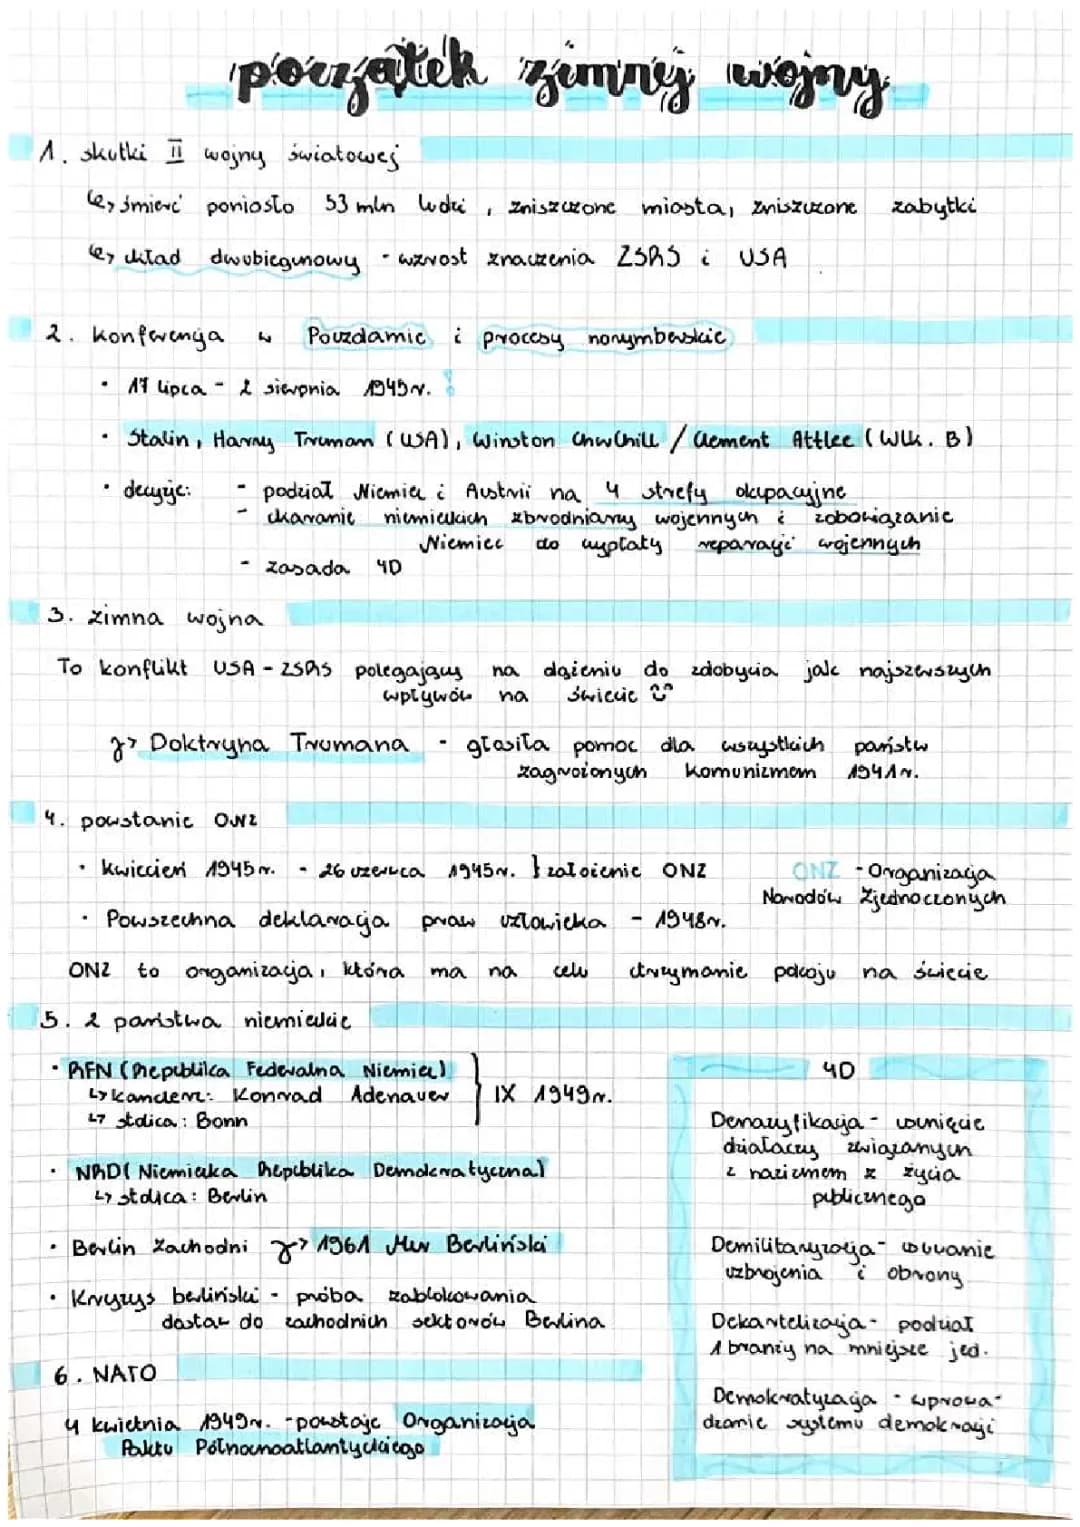 początek zimnej wojny
1. skutki II wojny światowej
↳ śmierć poniosło 53 mln ludzi, zniszczone miasta, zniszczone zabytki
↳ układ dwubiegunowy - wzrost znaczenia ZSRS i USA
2. konferencja w Poczdamie i procesy norymberskie
• 17 lipca - 2 sierpnia 1945r. !
• Stalin, Harry Truman (USA), Winston Churchill / Clement Attlee (Wlk. B)
• decyzje: - podział Niemiec i Austrii na 4 strefy okupacyjne
- ukaranie niemieckich zbrodniarzy wojennych i zobowiązanie
Niemiec do wypłaty reparacji wojennych
- zasada 4D
3. zimna wojna
To konflikt USA - ZSRS polegający na dążeniu do zdobycia jak najszerszych
wpływów na świecie
→ Doktryna Trumana - głosiła pomoc dla wszystkich państw
zagrożonych komunizmem 1947r.
4. powstanie ONZ
• kwiecień 1945r. - 26 czerwca 1945r. } założenie ONZ
ONZ - Organizacja
Narodów Zjednoczonych
• Powszechna deklaracja praw człowieka - 1948r.
ONZ to organizacja, która ma na celu utrzymanie pokoju na świecie
5. 2 państwa niemieckie
• RFN (Republika Federalna Niemiec)
↳ kanclerz: Konrad Adenauer } IX 1949r.
↳ stolica: Bonn
• NRD (Niemiecka Republika Demokratyczna)
↳ stolica: Berlin
• Berlin Zachodni → 1961 Mur Berliński
• Kryzys berliński - próba zablokowania
dostaw do zachodnich sektorów Berlina
6. NATO
4 kwietnia 1949r. - powstaje Organizacja
Paktu Północnoatlantyckiego
4D
Denazyfikacja - usunięcie
działaczy związanych
z nazizmem z życia
publicznego
Demilitaryzacja - usuwanie
uzbrojenia i obrony
Dekartelizacja - podział
1 branży na mniejsze jed.
Demokratyzacja - wprowa-
dzanie systemu demokracji